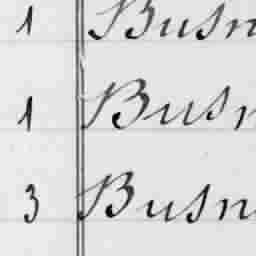 1 Busn
1 Busn
3 Busn